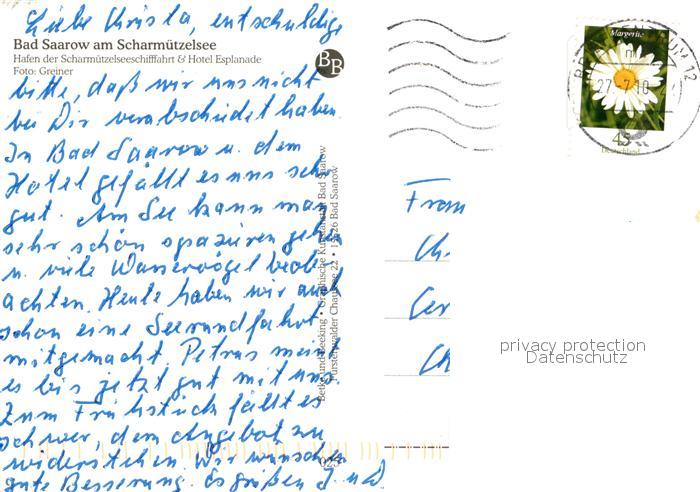 Liebe Christa, entschuldige
Bad Saarow am Scharmützelsee
Hafen der Scharmützelseeschifffahrt & Hotel Esplanade
Foto: Greiner
BB
bitte, daß wir uns nicht
bei Dir verabschiedet haben.
In Bad Saarow u. dem
Hotel gefällt es uns sehr
gut. Am See kann man
sehr schön spazieren gehen
u. viele Wasservögel beob-
achten. Heute haben wir auch
schon eine Seerundfahrt
mitgemacht. Petrus meint
es bis jetzt gut mit uns.
Zum Frühstück fällt es
schwer, dem Angebot zu
widerstehen. Wir wünschen
gute Besserung. Es grüßen J. und
Graphische Kunstanstalt Bad Saarow
Fürstenwalder Chaussee 22 • 15526 Bad Saarow
Margerite
45
Deutschland
27.7.10
12
Frau
Ch.
Ger
Ch
privacy protection
Datenschutz